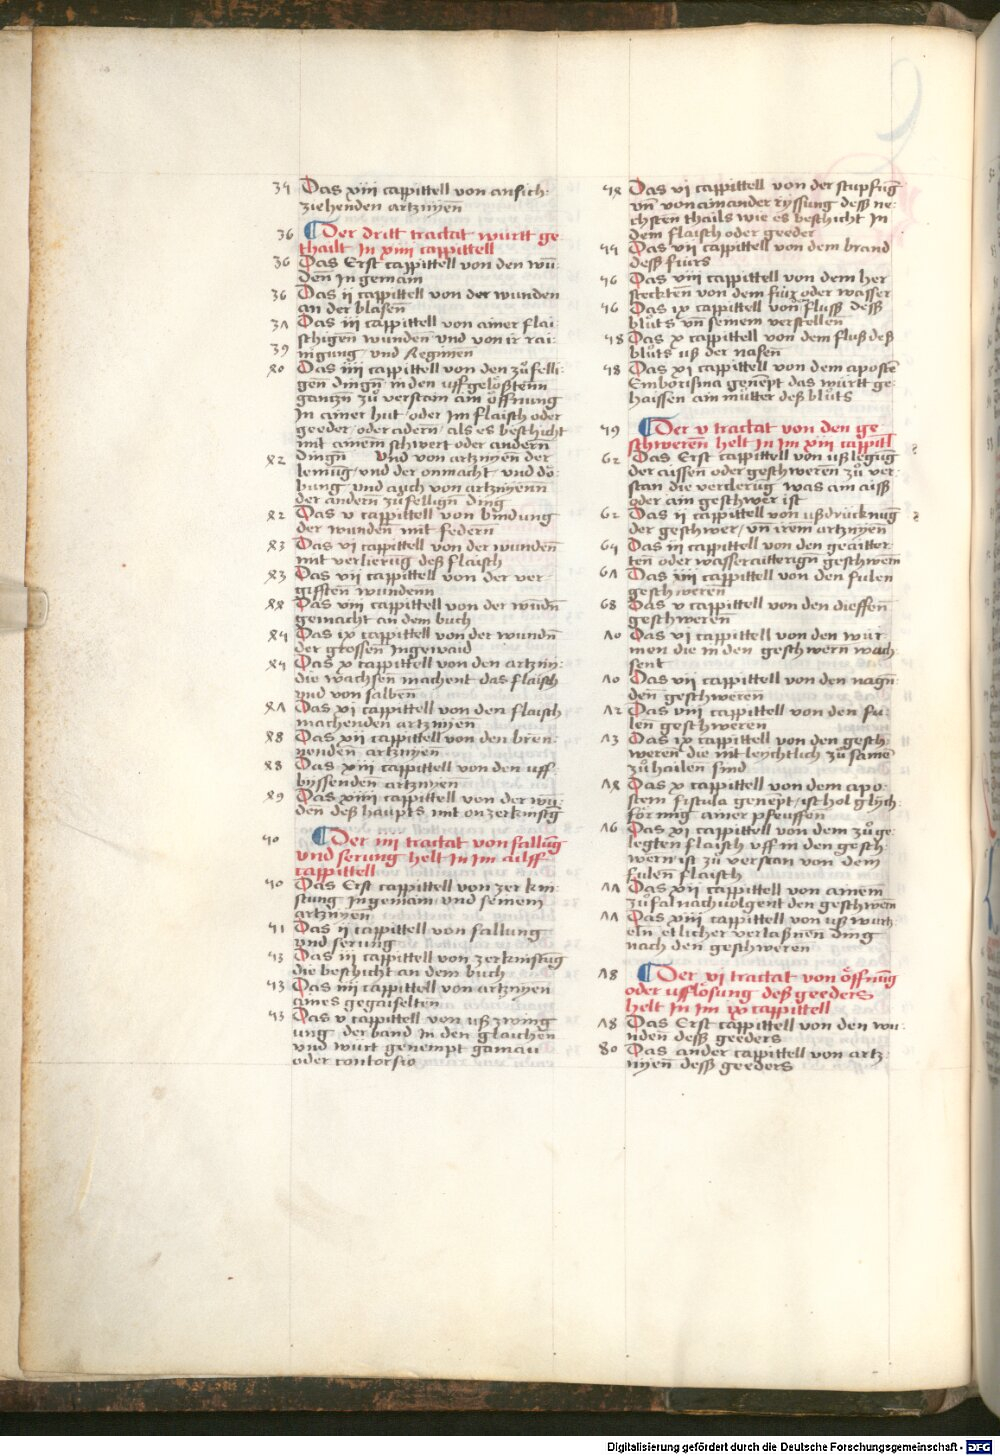 34 Das xiiii cappittell von ansich-
ziehenden artznyen
36 Der dritt tractat württ ge
thailt In xiiii cappittell
36 Das Erst cappittell von den wū
den In gemain
36 Das ii cappittell von der wunden
an der blasen̄
37 Das iii cappittell von ainer flai
schigen wunden vnd von ir rai
39 nigung / vnd Regimen
40 Das iiii cappittell von den zůfelli-
gen dingn̄ in den uff gelößtenn
gantzn̄ zů verstain am öffnung
In ainer hut / oder Im flaisch oder
geeder / oder adern / als es beschicht
mit ainem schwert oder andern̄
42 dingn̄ Vnd von artznyen̄ der
lemūg / vnd der onmacht / vnd dö-
bung / vnd auch von artznyenn̄
der andern̄ zůfellign̄ ding
42 Das v cappittell von bindung
der wunden̄ mit federn̄
43 Das vi cappittell von der wunden̄
mit verlierug deß flaisch
43 Das vii cappittell von der ver-
gifften̄ wundenn
44 Das viii cappittell von der wūdn̄
gemacht an dem buch
45 Das ix cappittell von der wundn̄
der grossen̄ Ingewaid
45 Das x cappittell von den artznÿ-
die wachsen machent das flaisch
vnd von salben̄
47 Das xi cappittell von den flaisch
machenden artznien
48 Das xii cappittell von den bren-
nenden̄ artznyen̄
48 Das xiii cappittell von den uff
byssenden artznyen̄
49 Das xiiii cappittell von der wū-
den deß haupts mit on zerkinstḡ
50 Der iiii tractat von fallūg
vnd serung helt In Im ailff
cappittell
50 Das Erst cappittell von zer kni-
stung In gemain vnd seinem
artznyen
51 Das ii cappittell von fallung
vnd serung
53 Das iii cappittell von zerknistūg
die beschicht an dem buch
53 Das iiii cappittell von artznyen
aines gegaiselten
53 Das v cappittell von uß zwing
ung der band In den glaichen
vnd würt genempt gamau
oder contorsio
54 Das vi cappittell von der stupfūg
vn̄ von ainander ryssung deß ne-
chsten thails wie es beschicht In
dem flaisch oder geeder
55 Das vii cappittell von dem brand
deß fiurs
56 Das viii cappittell von dem her
steckten von dem fiur oder wasser
56 Das ix cappittell von fluß deß
blůts vn̄ seinem verstellen
58 Das x cappittell von dem fluß deß
blůts uß der nasen̄
58 Das xi cappittell von dem aposte
Emborisma genēpt das württ ge-
haissen ain můtter deß blůts
59 Der v tractat von den ge
schweren̄ helt In Im xiii cappitl
62 Das Erst cappittell von ußlegūg
der aissen oder geschweren̄ zů ver-
stan die verderūg was ain aiß
oder ain geschwer ist
62 Das ii cappittell von ußdrucknūg
der geschwer / vn̄ irem artznyen̄
64 Das iii cappittell von den geaitter
ten̄ oder wasseraitterign̄ geschwern̄
67 Das iiii cappittell von den fulen
geschweren̄
68 Das v cappittell von den dieffen
geschweren̄
70 Das vi cappittell von den wür-
men die in den geschwern wach-
sent
70 Das vii cappittell von den nagn̄
den̄ geschweren̄
72 Das viii cappittell von den fu-
len̄ geschweren̄
73 Das ix cappittell von den gesch-
weren die nit leychtlich zů same
zů hailen sind
74 Das x cappittell von dem apo-
stem fistula genēpt / ist hol glych-
förmig ainer pfeuffen̄
76 Das xi cappittell von dem zůge-
legten flaisch uff in den gesch-
wern ist zů verstan von dem
fulen flaisch
77 Das xii cappittell von ainem
zůfal nachvolgent den geschwern̄
77 Das xiii cappittell von uß wurtz
eln etlicher verlaßnen ding
nach den geschweren
78 Der vi tractat von öffnūg
oder ufflösung deß geeders
helt In im ix cappittell
78 Das Erst cappittell von den wu-
nden deß geeders
80 Das ander cappittell von artz-
nyen̄ deß geeders
Digitalisierung gefördert durch die Deutsche Forschungsgemeinschaft - DFG